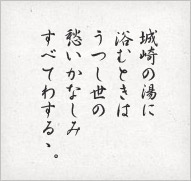 城崎の湯に
浴むときは
うつし世の
愁いかなしみ
すべてわするゝ。